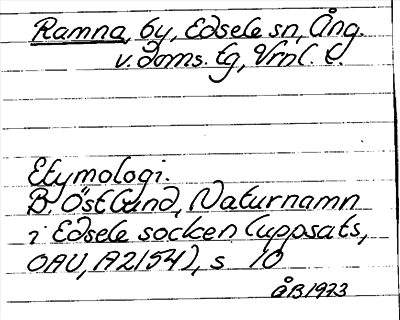 Ramna, by, Edsele sn, Ång.
v. doms. tg, Vrnl. l.
Etymologi.
B. Östlund, Naturnamn
i Edsele socken (uppsats,
OAU, A2154), s 10
ÅB 1973